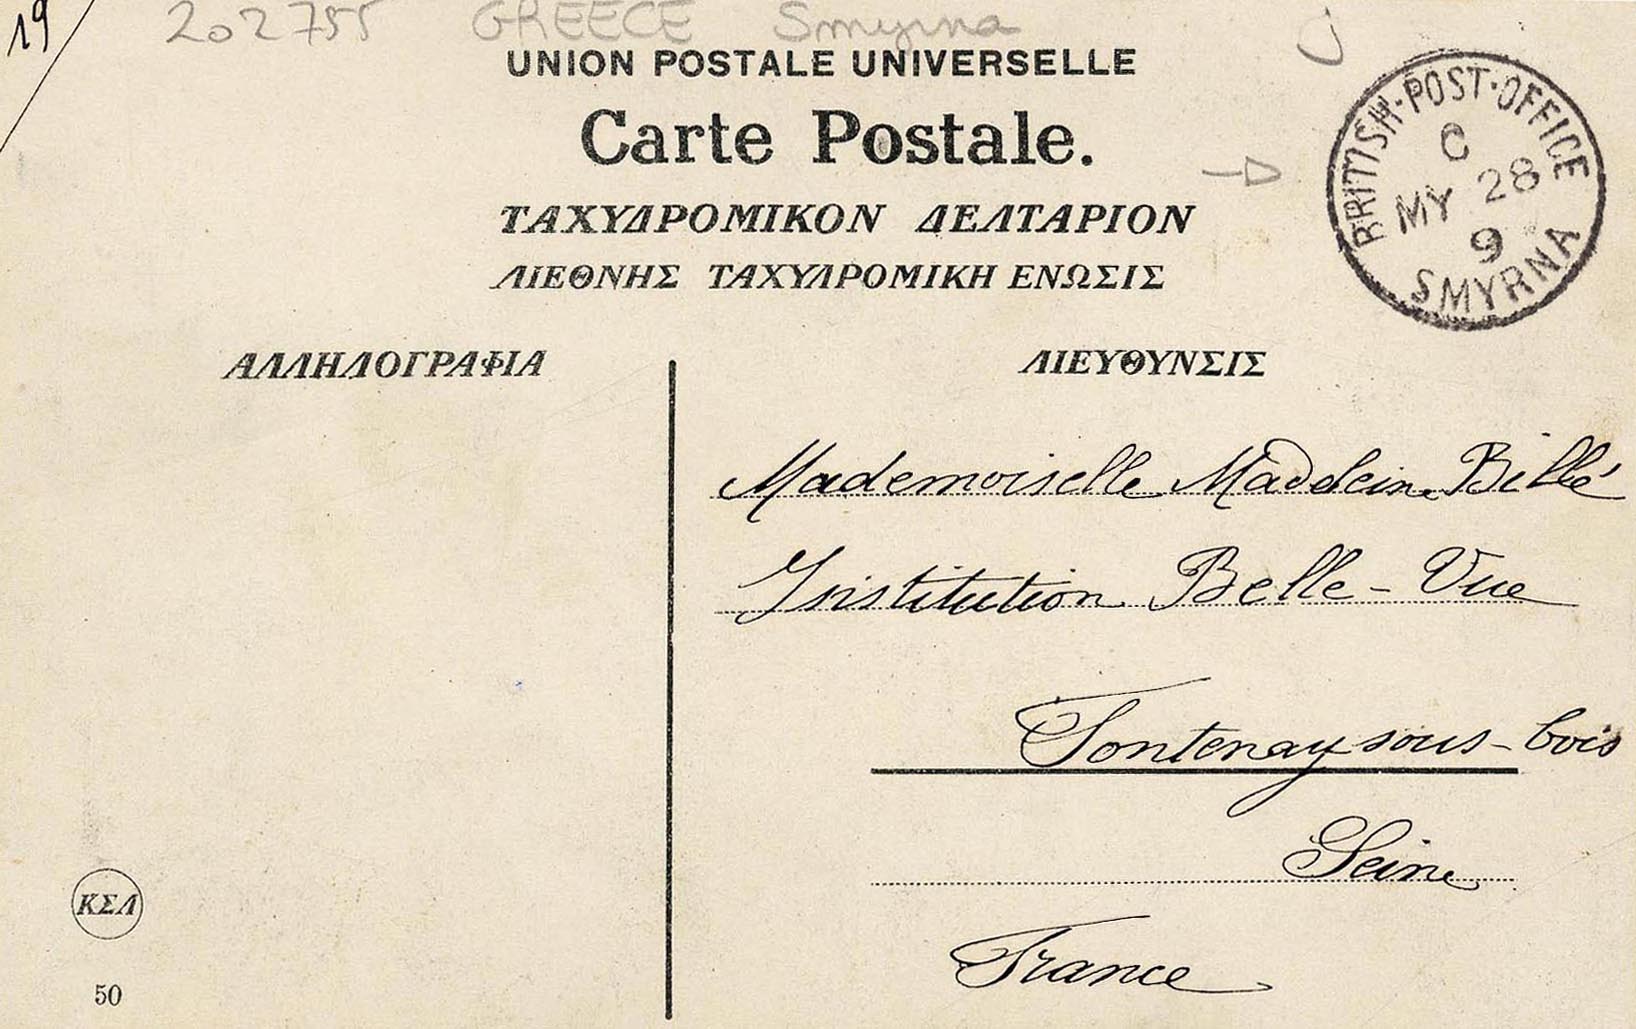 19
202755 GREECE Smyrna
UNION POSTALE UNIVERSELLE
Carte Postale.
ΤΑΧΥΔΡΟΜΙΚΟΝ ΔΕΛΤΑΡΙΟΝ
ΔΙΕΘΝΗΣ ΤΑΧΥΔΡΟΜΙΚΗ ΕΝΩΣΙΣ
BRITISH·POST·OFFICE
C
MY 28
9
SMYRNA
ΑΛΛΗΛΟΓΡΑΦΙΑ
ΔΙΕΥΘΥΝΣΙΣ
Mademoiselle Madelein Billé
Institution Belle-Vue
Fontenay sous-bois
Seine
France
ΚΣΔ
50